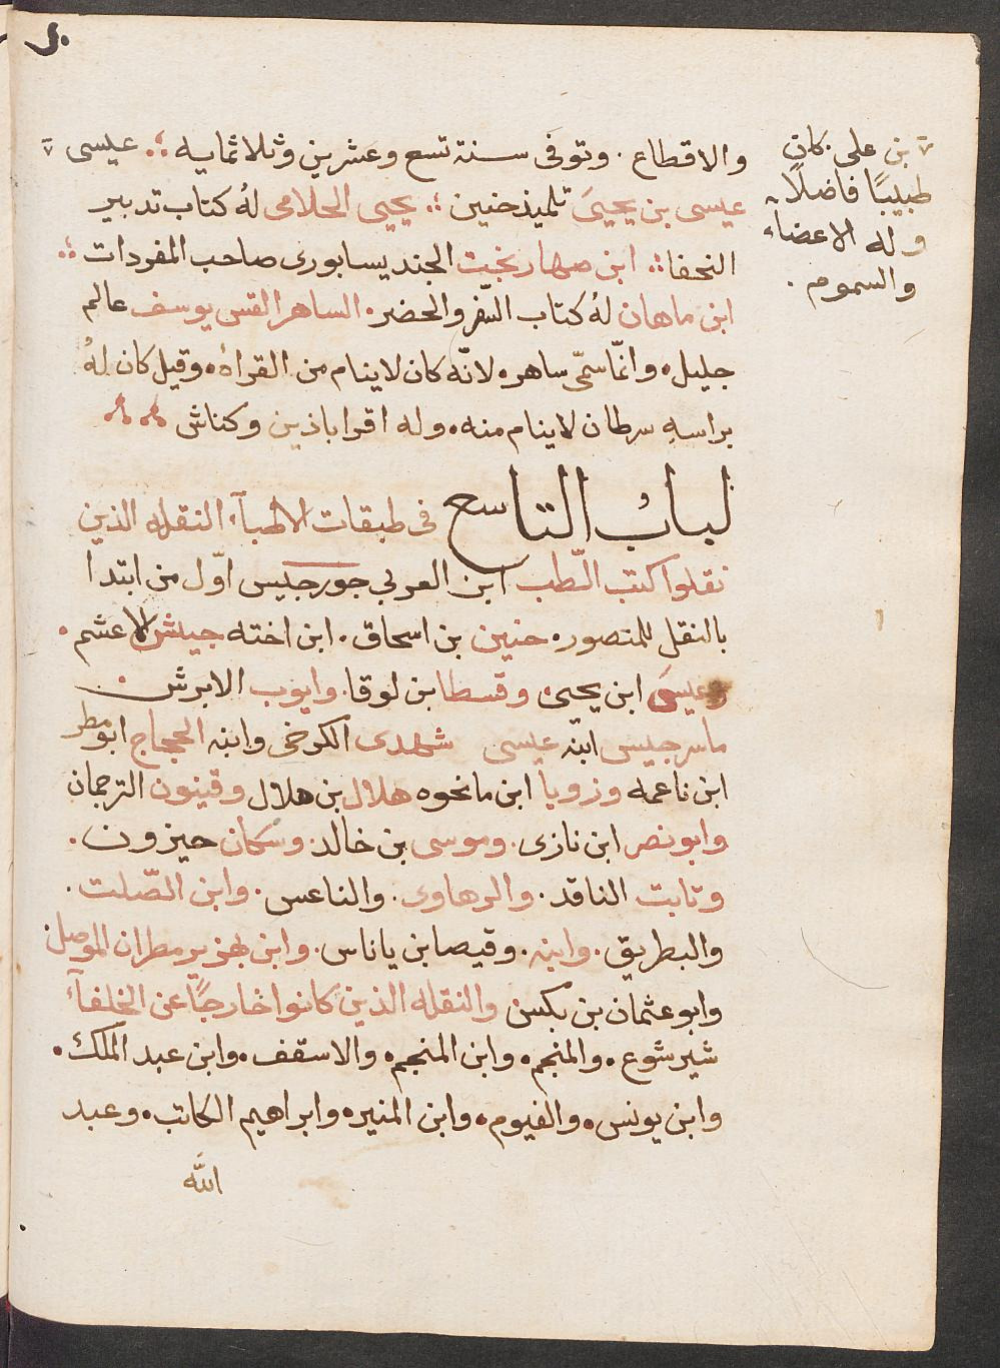 والاقطاع . وتوفى سنة تسع وعشرين وثلاثمايه ؛. عيسى
بن على كان
طبيبًا فاضلًا
وله الاعضاء
والسموم .
عيسى بن يحيىَ تلميذ حنين ؛. يحيى الحلامى لهُ كتاب تدبير
النحفا ؛. ابن صهاربخت الجنديسابورى صاحب المفردات ؛.
ابن ماهان لهُ كتاب السّفر والحضر . الساهر القس يوسف عالم
جليل . وانّما سمّى ساهره لانّه كان لا ينام من القراه . وقيل كان لهُ
براسهِ سرطان لا ينام منه . وله اقراباذين وكناش
لباب التاسع فى طبقات الاطبآء النقله الذين
نقلوا كتب الطّب ابن العربي جورجيس اوّل من ابتدا
بالنقل للمنصور . حنين بن اسحاق . ابن اخته حبيش الاعشم .
وعيسىَ ابن يحيى . وقسطا ابن لوقا . وايوب الابرش .
ماسرجيس ابنه عيسى شهدى الكرخى وابنه الحجاج ابو مطر
ابن ناعمه وزوبا ابن مانحوه هلال بن هلال وقينون الترجمان
وابو نصر ابن نازى . وموسى بن خالد . وسكان حيزون .
وثابت الناقد . والرهاوى . والناعس . وابن الصّلت .
والبطريق . وابنه . وقيصا بن ياناس . وابن بهزير مطران الموصل
وابو عثمان بن بكس والنقله الذين كانوا خارجًا عن الخلفآء
شيرشوع . والمنجم . وابن المنجم . والاسقف . وابن عبد الملك .
وابن يونس . والفيوم . وابن المنيره وابراهيم الكاتب . وعبد
اللّه